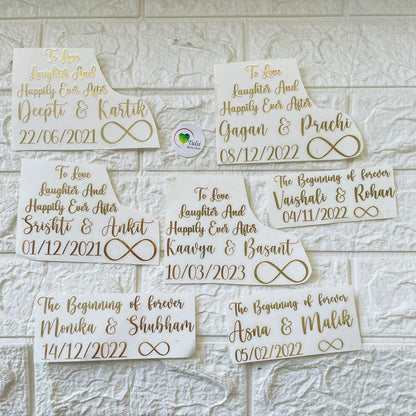 To Love
Laughter And
Happily Ever After
Deepti & Kartik
22/06/2021
To Love
Laughter And
Happily Ever After
Gagan & Prachi
08/12/2022
To Love
Laughter And
Happily Ever After
Srishti & Ankit
01/12/2021
To Love
Laughter And
Happily Ever After
Kaavya & Basant
10/03/2023
The Beginning of forever
Vaishali & Rohan
04/11/2022
The Beginning of forever
Monika & Shubham
14/12/2022
The Beginning of forever
Asna & Malik
05/02/2022